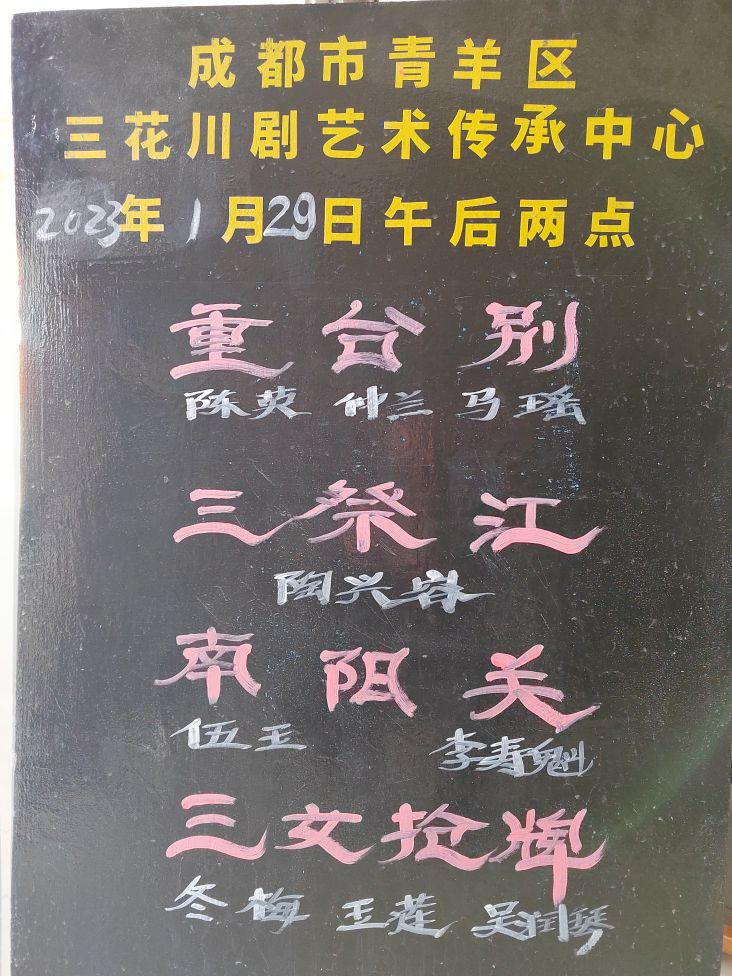 成都市青羊区
三花川剧艺术传承中心
2023年1月29日午后两点
重台别
陈英 仲兰 马瑶
三祭江
陶兴容
南阳关
伍王 李寿魁
三女抢牌
冬梅 玉莲 吴润琴